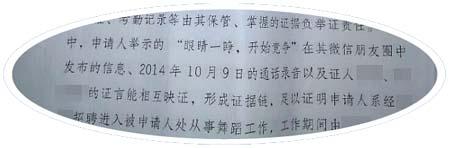 、考勤记录等由其保管、掌握的证据负举证责任
中，申请人举示的“眼睛一睁，开始竞争”在其微信朋友圈中
发布的信息、2014年10月9日的通话录音以及证人
的证言能相互映证，形成证据链，足以证明申请人系经
招聘进入被申请人处从事舞蹈工作，工作期间由